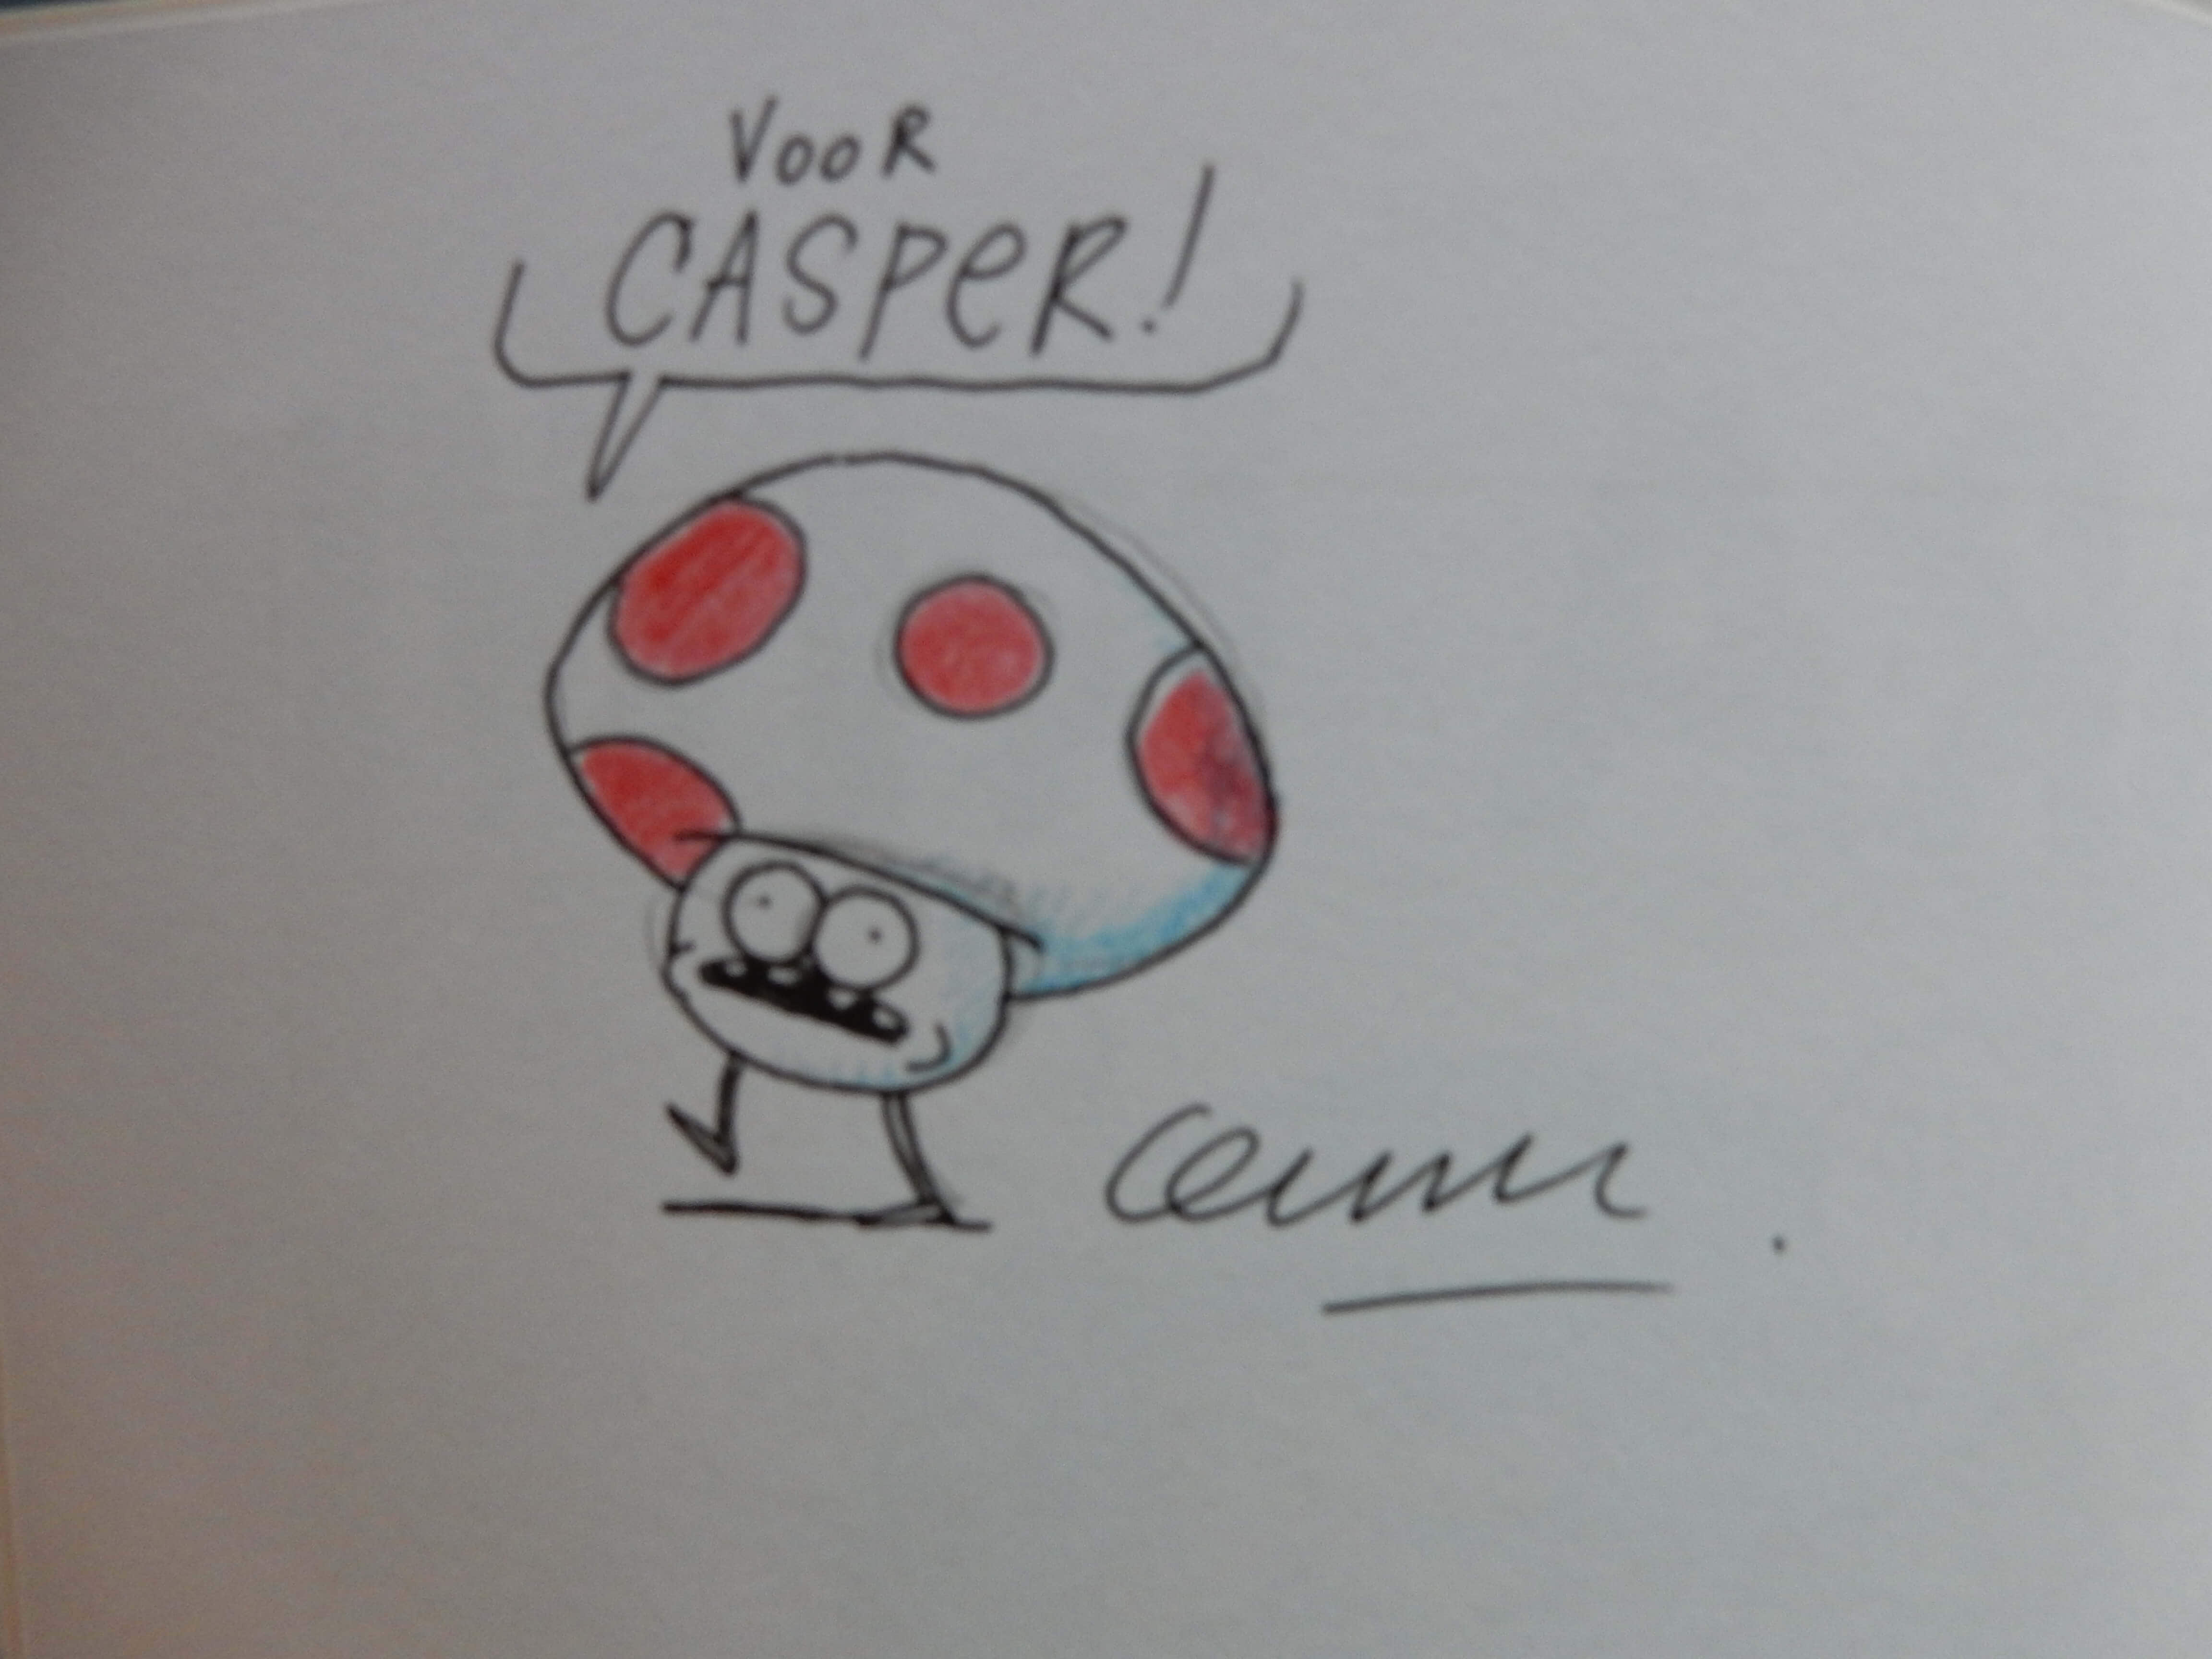 VOOR
CASPER!